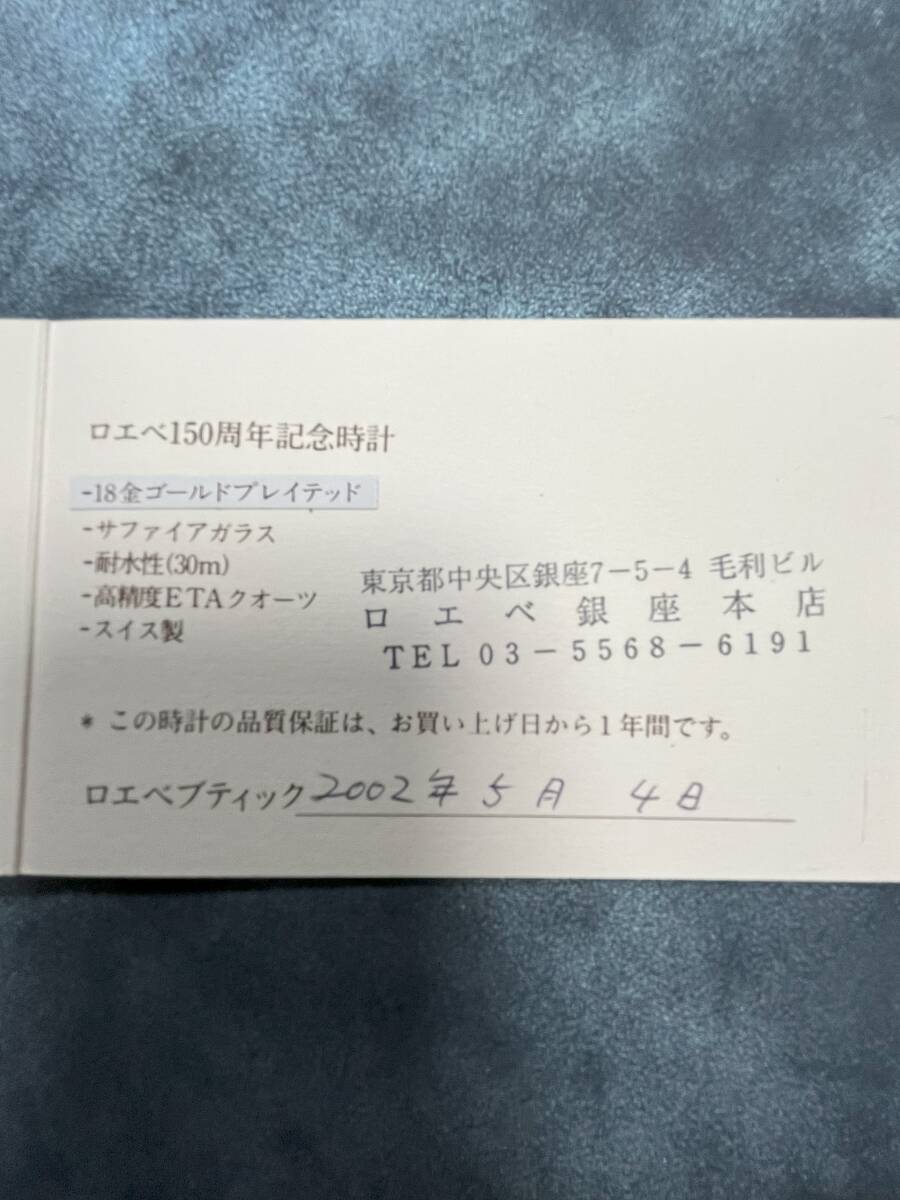 ロエベ150周年記念時計
-18金ゴールドプレイテッド
-サファイアガラス
-耐水性(30m)
-高精度ETAクオーツ
-スイス製
東京都中央区銀座7-5-4 毛利ビル
ロエベ銀座本店
TEL 03-5568-6191
* この時計の品質保証は、お買い上げ日から1年間です。
ロエベブティック 2002年 5月 4日